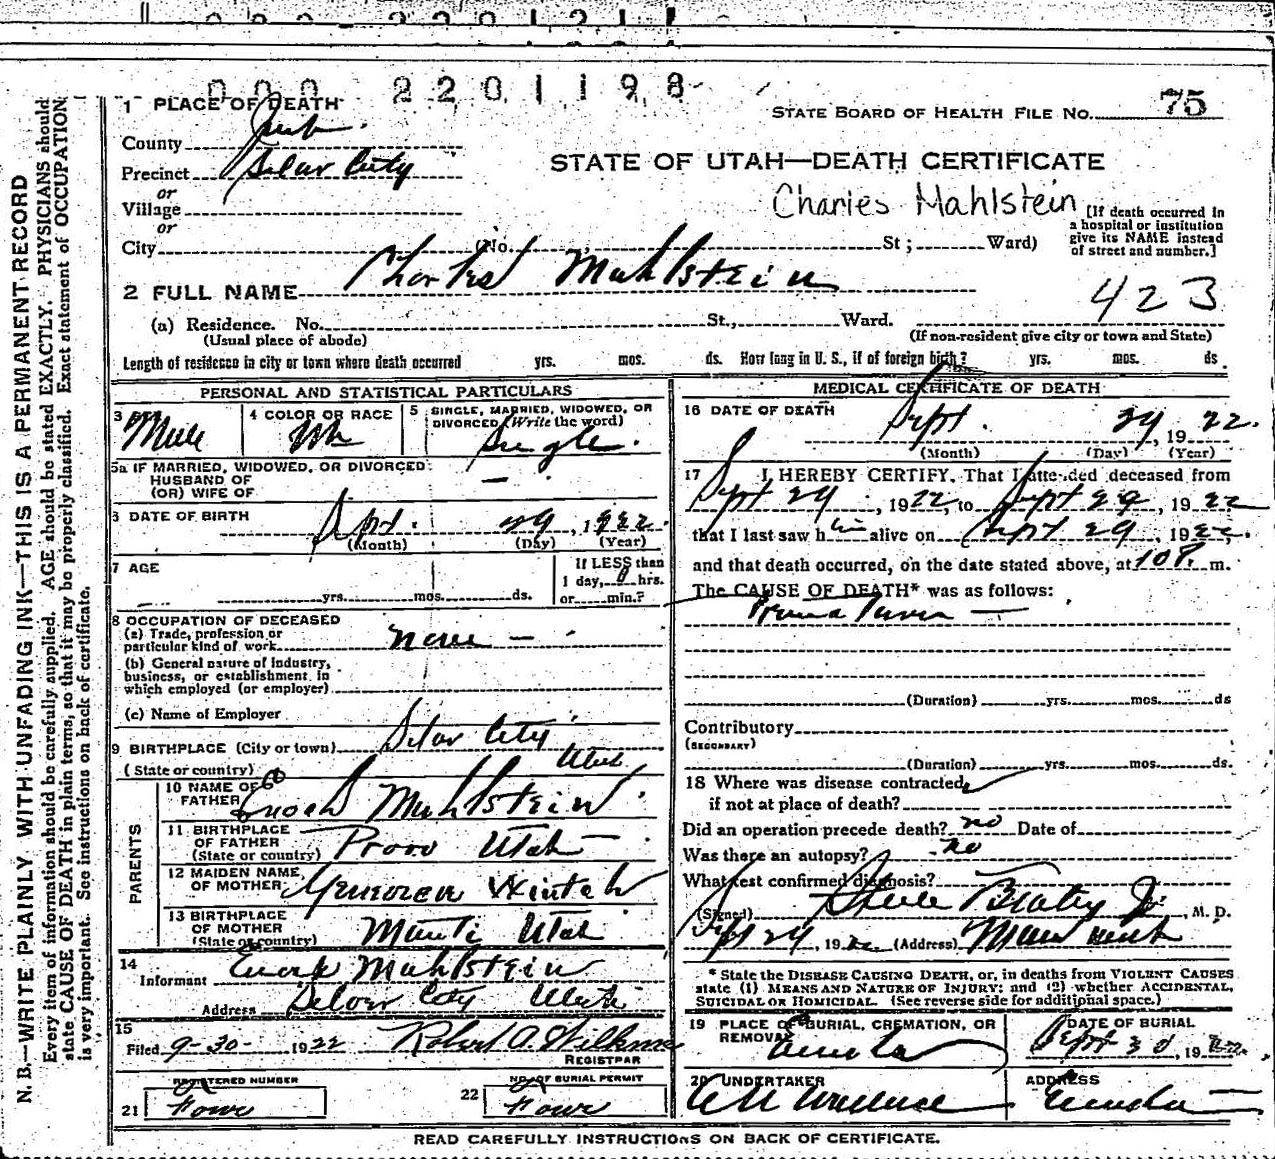 000 2201198
STATE BOARD OF HEALTH FILE NO. 75
1 PLACE OF DEATH
County Juab
Precinct Silver City
or
Village
or
City (No. St; Ward)
STATE OF UTAH—DEATH CERTIFICATE
Charles Mahlstein
[If death occurred in a hospital or institution give its NAME instead of street and number.]
2 FULL NAME Charles Muhlstein
423
(a) Residence. No. St., Ward.
(Usual place of abode) (If non-resident give city or town and State)
Length of residence in city or town where death occurred yrs. mos. ds. How long in U. S., if of foreign birth? yrs. mos. ds
PERSONAL AND STATISTICAL PARTICULARS
3 Male 4 COLOR OR RACE Wh 5 SINGLE, MARRIED, WIDOWED, OR DIVORCED (Write the word) Single
5a IF MARRIED, WIDOWED, OR DIVORCED
HUSBAND OF
(OR) WIFE OF
6 DATE OF BIRTH Sept. 29, 1922
(Month) (Day) (Year)
7 AGE
yrs. mos. ds.
If LESS than
1 day, hrs.
or min.?
8 OCCUPATION OF DECEASED
(a) Trade, profession or
particular kind of work None
(b) General nature of industry,
business, or establishment in
which employed (or employer)
(c) Name of Employer
9 BIRTHPLACE (City or town) Silver City
(State or country) Utah
PARENTS
10 NAME OF
FATHER Enoch Muhlstein
11 BIRTHPLACE
OF FATHER
(State or country) Provo Utah
12 MAIDEN NAME
OF MOTHER
13 BIRTHPLACE
OF MOTHER
(State or country) Manti Utah
14
Informant Enoch Muhlstein
Address Silver City Utah
15
Filed 9-30- 1922 Robert A. Wilkins
REGISTRAR
REGISTERED NUMBER
21 Four
NO. OF BURIAL PERMIT
22 Four
MEDICAL CERTIFICATE OF DEATH
16 DATE OF DEATH
Sept. 29, 1922.
(Month) (Day) (Year)
17 I HEREBY CERTIFY, That I attended deceased from
Sept 29, 1922, to Sept 29, 1922
that I last saw him alive on Sept 29, 1922,
and that death occurred, on the date stated above, at 10 P. m.
The CAUSE OF DEATH* was as follows:
(Duration) yrs. mos. ds
Contributory
(SECONDARY)
(Duration) yrs. mos. ds.
18 Where was disease contracted,
if not at place of death?
Did an operation precede death? no Date of
Was there an autopsy? no
What test confirmed diagnosis?
(Signed) Steele Bailey Jr., M. D.
Sept 29, 1922 (Address) Mammoth
* State the DISEASE CAUSING DEATH, or, in deaths from VIOLENT CAUSES
state (1) MEANS AND NATURE OF INJURY; and (2) whether ACCIDENTAL,
SUICIDAL or HOMICIDAL. (See reverse side for additional space.)
19 PLACE OF BURIAL, CREMATION, OR
REMOVAL Eureka
DATE OF BURIAL
Sept 30, 1922.
20 UNDERTAKER ADDRESS
Eureka
READ CAREFULLY INSTRUCTIONS ON BACK OF CERTIFICATE.
N. B.—WRITE PLAINLY WITH UNFADING INK—THIS IS A PERMANENT RECORD
Every item of information should be carefully supplied. AGE should be stated EXACTLY. PHYSICIANS should
state CAUSE OF DEATH in plain terms, so that it may be properly classified. Exact statement of OCCUPATION
is very important. See instructions on back of certificate.